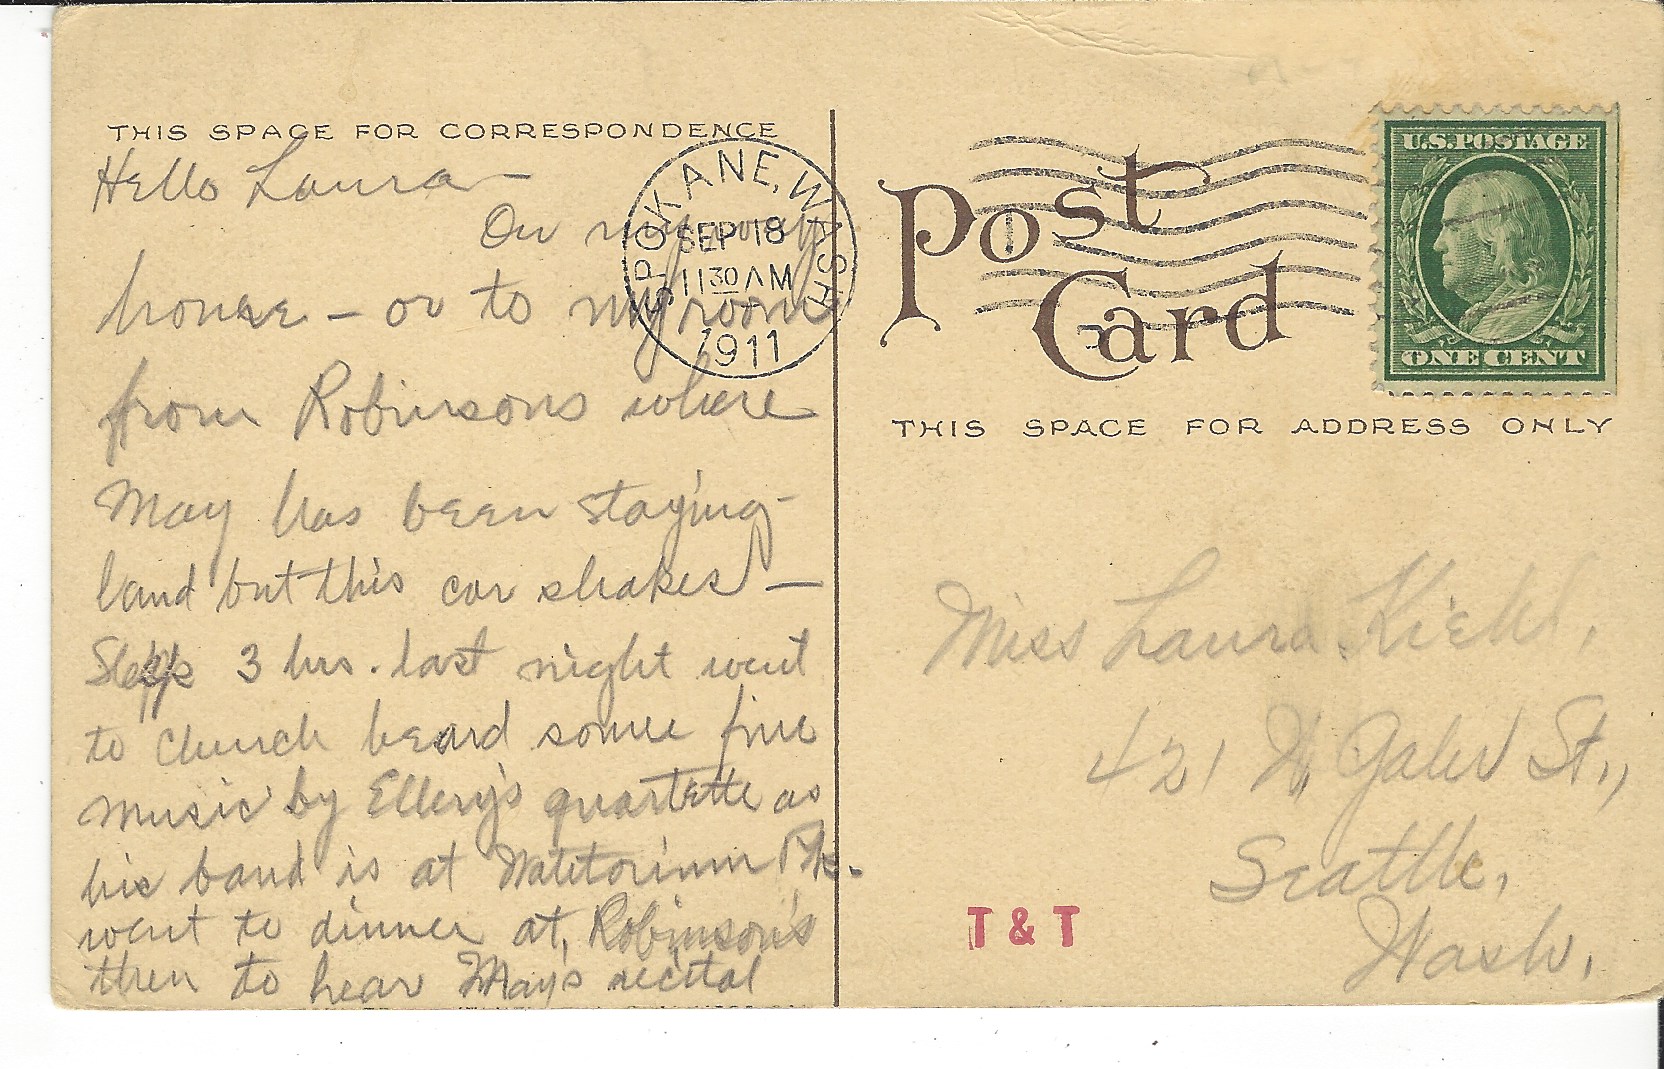 THIS SPACE FOR CORRESPONDENCE
Hello Laura –
On my way
house – or to my room
from Robinsons where
May has been staying –
land but this car shakes –
Slept 3 hrs. last night went
to church heard some fine
music by Ellery's quartette as
his band is at Natitorium Pk.
went to dinner at, Robinson's
then to hear May's recital
SPOKANE, WASH
SEP 18
11 30 AM
1911
Post
Card
U.S. POSTAGE
ONE CENT
THIS SPACE FOR ADDRESS ONLY
Miss Laura Kiehl,
421 W. Galer St.,
Seattle,
Wash.
T & T